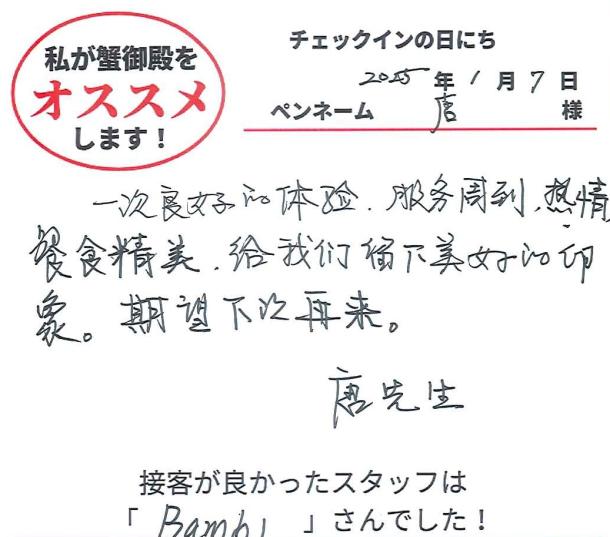 私が蟹御殿を
オススメ
します！
チェックインの日にち
2025年1月7日
ペンネーム 唐 様
一次良好的体验．服务周到，热情
餐食精美．给我们留下美好的印
象。期望下次再来。
唐先生
接客が良かったスタッフは
「 Bambi 」さんでした！